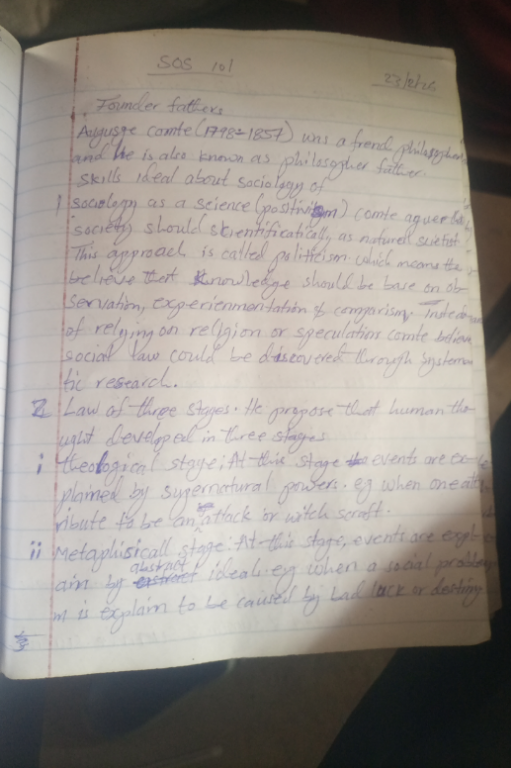 SOS 101
Founder fathers
Auguste comte (1798-1857) was a french philosopher
and he is also known as philosopher father.
skills ideal about sociology of
1 sociology as a science (positivism) comte
society should scientifically as natural
This approach is called which means the
believe that knowledge should be base on ob-
servation, experienmentation & comparism. Instead
of relying on religion or speculation comte believe
social law could be discovered through systema-
tic research.
2 Law of three stages. He propose that human tho-
ught developed in three stages
i theological stage: At this stage events are ex-
plained by supernatural powers. eg when one att-
ribute to be an attack or witch scraft.
ii Metaphisicall stage: At this stage, events are expl
ain by abstract ideal. eg when a social problem
m is explain to be caused by bad luck or destiny